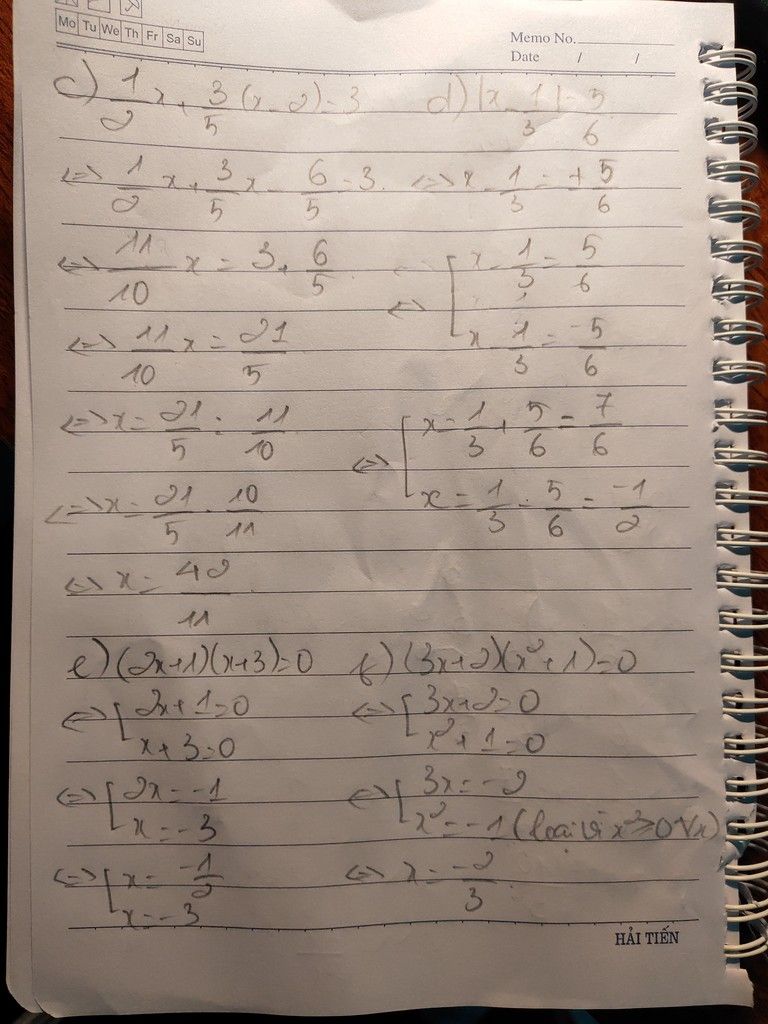 Mo Tu We Th Fr Sa Su
Memo No.
Date / /
c) 1/2 x + 3/5 (x - 2) = 3
<=> 1/2 x + 3/5 x - 6/5 = 3
<=> 11/10 x = 3 + 6/5
<=> 11/10 x = 21/5
<=> x = 21/5 : 11/10
<=> x = 21/5 . 10/11
<=> x = 42/11
d) |x - 1/3| = 5/6
<=> x - 1/3 = ± 5/6
<=> [ x - 1/3 = 5/6
x - 1/3 = -5/6
<=> [ x = 1/3 + 5/6 = 7/6
x = 1/3 - 5/6 = -1/2
e) (2x+1)(x+3)=0
<=> [ 2x+1=0
x+3=0
<=> [ 2x=-1
x=-3
<=> [ x = -1/2
x=-3
f) (3x+2)(x²+1)=0
<=> [ 3x+2=0
x²+1=0
<=> [ 3x=-2
x²=-1 (loại vì x²≥0 ∀x)
<=> x = -2/3
HẢI TIẾN